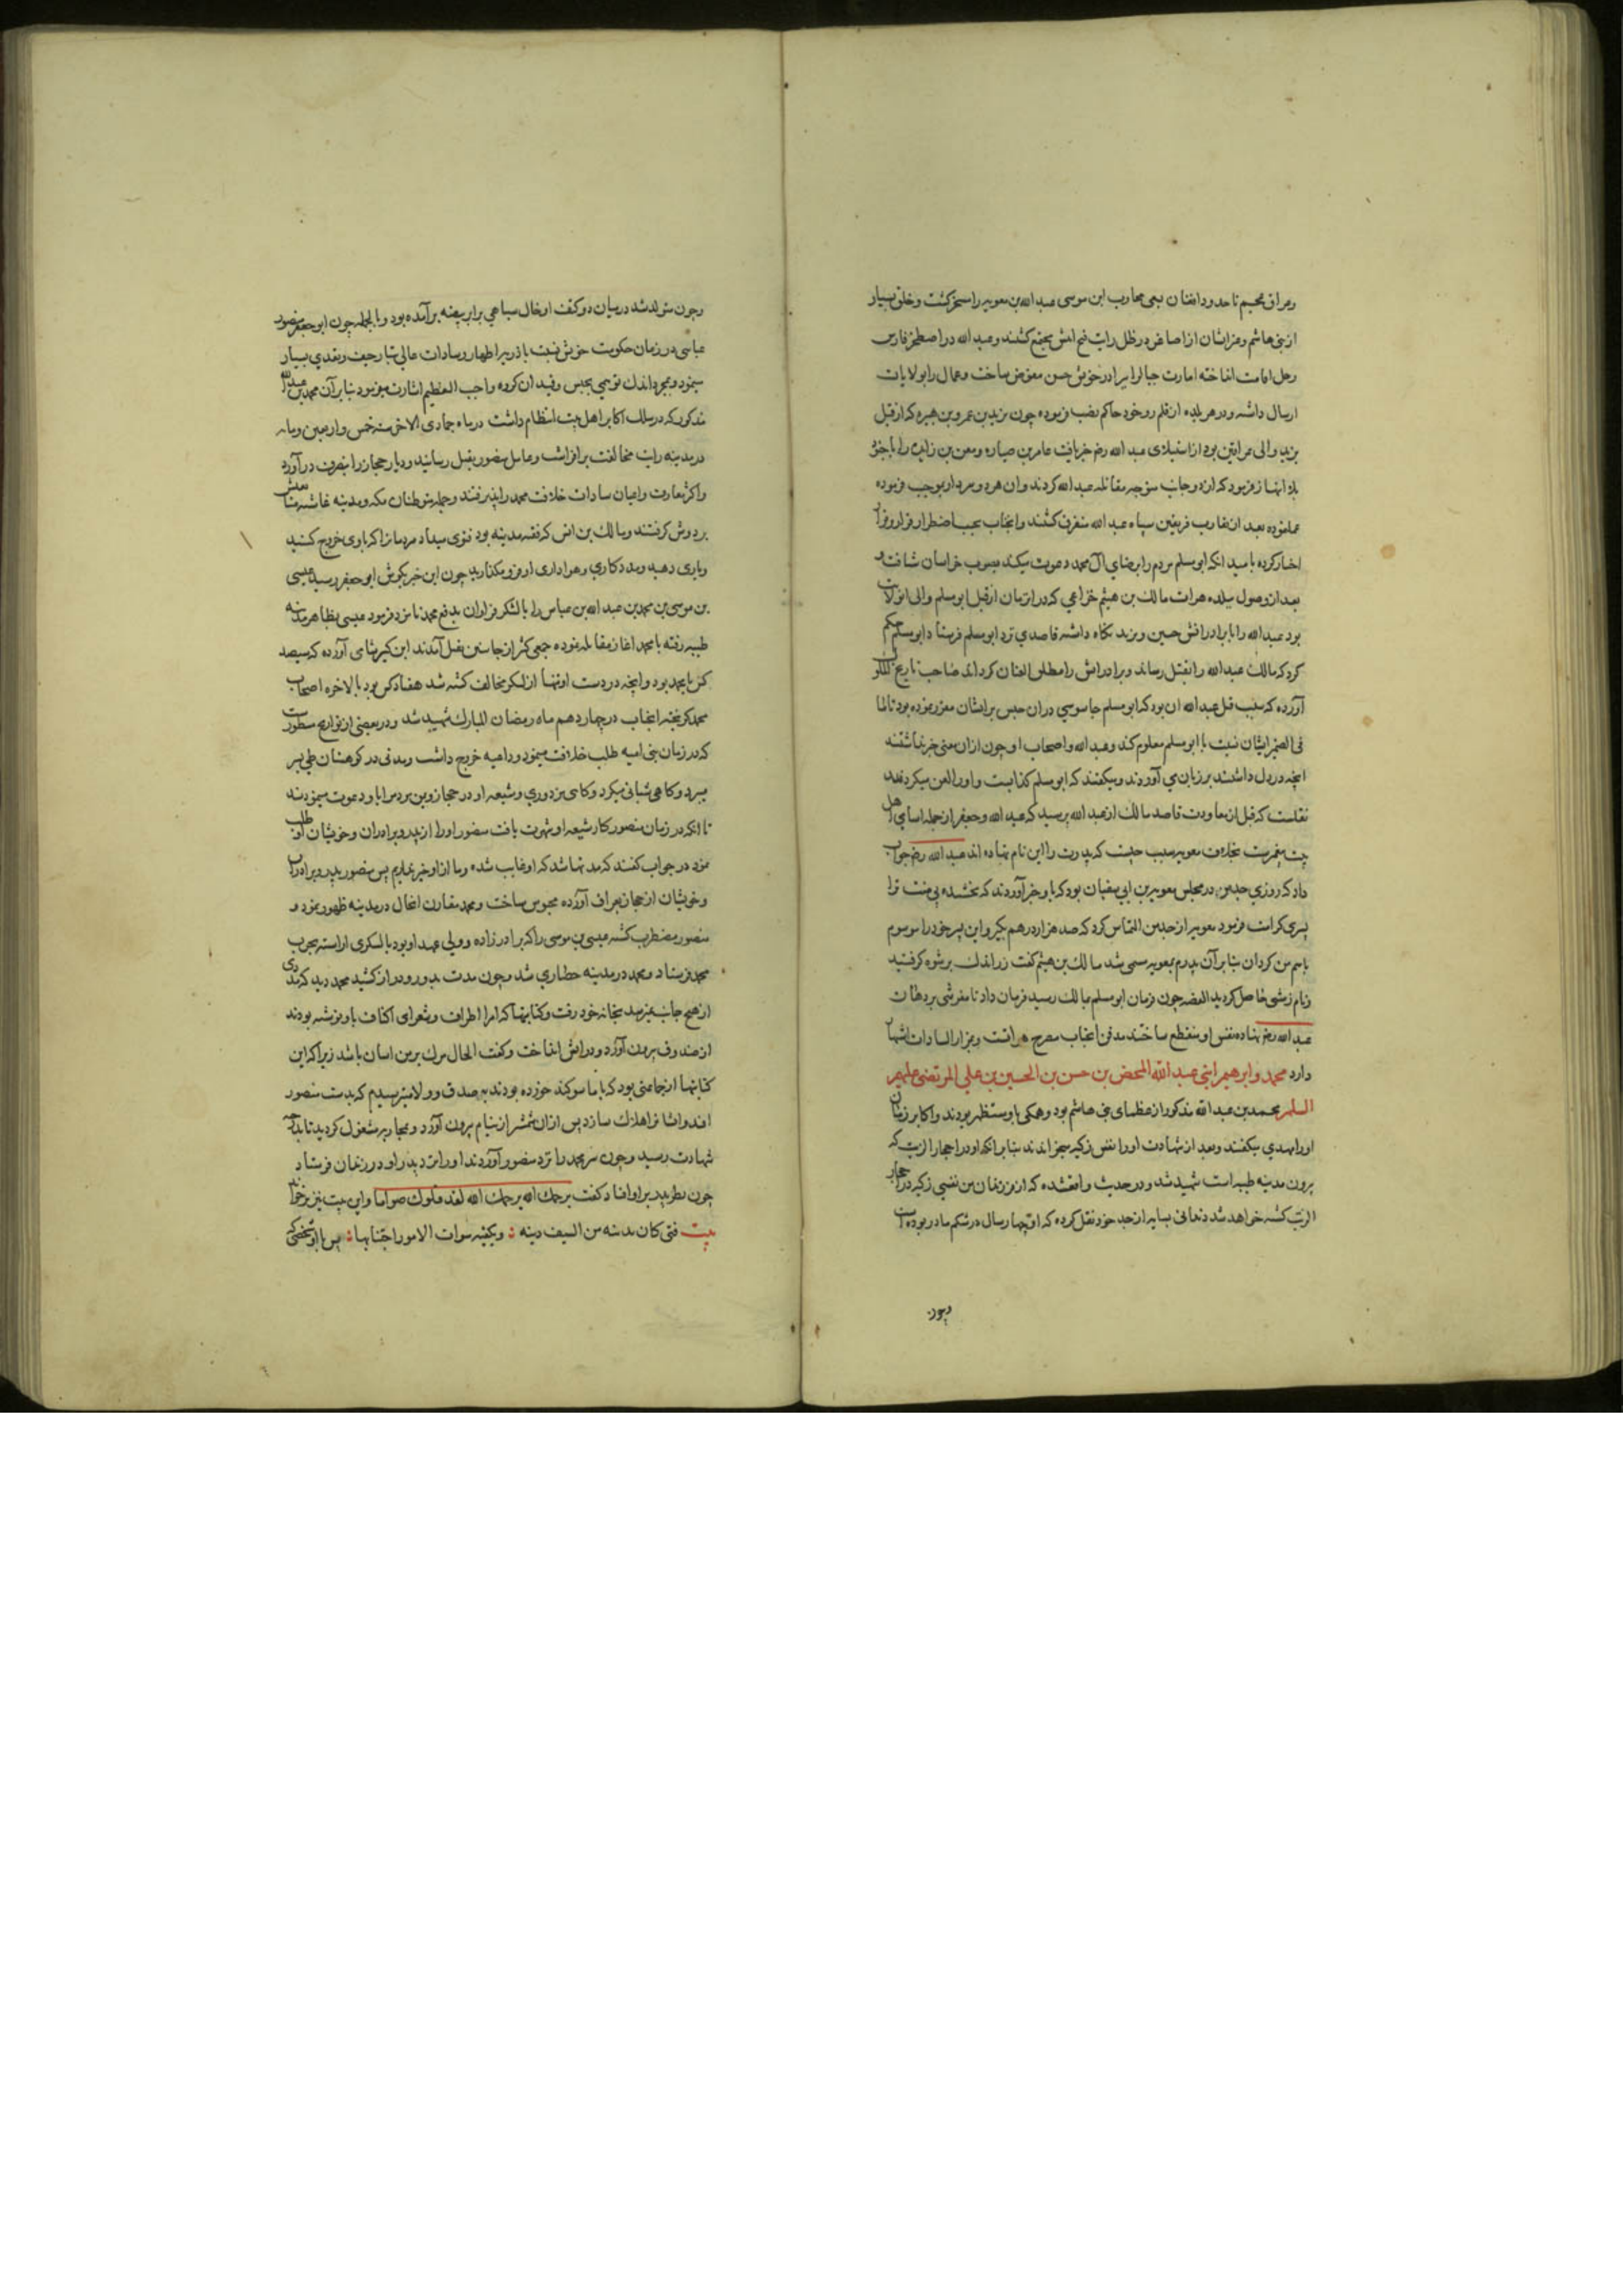 وعراق عجم تا حدود دامغان بسعی محارب ابن موسی عبد الله بن معویه را مسخر کشت و خلق بسیار
از بنی هاشم و غیر ایشان از اصاغر در ظل رایت فتح آیتش مجتمع کشتند و عبد الله در اصطخر فارس
رحل اقامت انداخته امارت جبال را ببرادر خویش حسن مفوض ساخت و عمال را بولایات
ارسال داشته و در هر بلده از قلم رو خود حاکم نصب فرموده چون یزید بن عمرو بن هبیره که از قبل
یزید والی عراقین بود از استیلای عبد الله رض خبر یافت عامر بن ضباره و معن بن زایده را با جنود
کردند و ان هر دو سردار بموجب فرموده
عمل نموده بعد از تقارب فریقین سپاه عبد الله متفرق کشتند و انجناب بحسب اضطرار فرار بر قرار
اختیار کرده بامید انکه ابو مسلم مردم را برضای آل محمد دعوت میکند بصوب خراسان شتافت و
بعد از وصول ببلده هرات مالک بن هیثم خزاعی که در ان زمان از قبل ابو مسلم والی ان ولایت
بود عبد الله را با برادرانش حسین و یزید نکاه داشته قاصدی نزد ابو مسلم فرستاد ابو مسلم حکم
کرد که مالک عبد الله را بقتل رساند و برادرانش را مطلق العنان کرداند صاحب تاریخ
آورده که سبب قتل عبد الله ان بود که ابو مسلم جاسوسی در ان حبس بر ایشان مقرر نموده بود تا ما
فی الضمیر ایشان نسبت با ابو مسلم معلوم کند و عبد الله و اصحاب او چون از ان معنی خبر نداشتند
انچه در دل داشتند بر زبان می آوردند و میکفتند که ابو مسلم کذابست و او را لعن میکردند
نقلست که قبل از معاودت قاصد مالک از عبد الله پرسید که عبد الله و جعفر از جمله اسامی اهل
بیت پیغمبرست بخلاف معویه سبب چیست که پدرت را این نام نهاده اند عبد الله رض جواب
داد که روزی جدم در مجلس معویه بن ابی سفیان بود که باو خبر آوردند که بخشنده بی منت ترا
پسری کرامت فرمود معویه از جدم التماس کرد که صد هزار درهم بکیر و این پسر خود را موسوم
باسم من کردان بنابر آن پدرم بمعویه مسمی شد مالک بن هیثم کفت زر اندک برشوه کرفتید
و نام زشتی حاصل کردید القصه چون فرمان ابو مسلم بمالک رسید فرمان داد تا مفرشی بر دهان
عبد الله رض نهاده نفس او منقطع ساختند مدفن انجناب مصرح هراتست و بمزار السادات اشتهار
دارد محمد و ابراهیم ابنی عبد الله المحض بن حسن بن الحسین بن علی المرتضی علیهم
السلم محمد بن عبد الله مذکور از عظمای بنی هاشم بود و همکی باو مستظهر بودند و اکابر زمان
او را مهدی میکفتند و بعد از شهادت او را نفس زکیه میخواندند بنابر انکه او در احجار الزیت که
برون مدینه طیبه است شهید شد و در حدیث واقعشده که از فرزندان من نفسی زکیه در احجار
الزیت کشته خواهد شد از جد خود نقل کرده که او چهار سال در شکم مادر بوده است
وچون
وچون متولد شد در میان دو کتف او خال سیاهی برابر بیضه برآمده بود و بالجمله چون ابو جعفر منصور
عباسی در زمان حکومت خویش نسبت با ذریه اطهار و سادات عالی تبار حیف و تعدی بسیار
مینمود و بمجرد اندک توهمی بحبس و قید ان کروه واجب التعظیم اشارت میفرمود بنابر آن محمد بن عبد الله
مذکور که در سلک اکابر اهل بیت انتظام داشت در ماه جمادی الاخر سنه خمس و اربعین و مایه
در مدینه رایت مخالفت بر افراشت و عامل منصور بقتل رسانید و دیار حجاز را بتصرف در آورد
واکثر معارف و اعیان سادات خلافت محمد را پذیرفتند و جمله متوطنان مکه و مدینه غاشیه متابعتش
بر دوش کرفتند و مالک بن انس که فقیه مدینه بود فتوی میداد مردمانرا که باوی خروج کنید
و یاری دهید و مددکاری و هواداری او فرو مکذارید چون این خبر بکوش ابو جعفر رسید عیسی
بن موسی بن محمد بن عبد الله بن عباس را با لشکر فراوان بدفع محمد نامزد فرمود عیسی بظاهر مدینه
طیبه رفته با محمد اغاز مقاتله نموده جمعی کثیر از جانبین بقتل آمدند ابن کثیر شامی آورده که سیصد
کس با محمد بود و انچه در دست او تنها از لشکر مخالف کشته شد هفتاد کس بود بالاخره اصحاب
محمد کریخته انجناب در چهاردهم ماه رمضان المبارک شهید شد و در بعضی از تواریخ مسطور است
که در زمان بنی امیه طلب خلافت مینمود و داعیه خروج داشت و مدتی در کوهستان طی بسر
میبرد و کاهی شبانی میکرد و کاهی مزدوری و شیعه او در حجاز و بین مردم را باو دعوت مینمودند
تا انکه در زمان منصور کار شیعه او شهرت یافت منصور او را از پدر و برادران و خویشان او طلب
نمود در جواب کفتند که مدتها شد که او غایب شده و ما از او خبر نداریم پس منصور پدر و برادران
و خویشان از حجاز بعراق آورده محبوس ساخت و محمد مقارن انحال در مدینه ظهور نمود و
منصور مضطرب کشته عیسی بن موسی را که برادر زاده و ولی عهد او بود با لشکری اراسته بحرب
محمد فرستاد و محمد در مدینه حصاری شد و چون مدت بدور و دراز کشید محمد دید که مددی
از هیچ جانب نمیرسد بخانه خود رفت و کتابتها که امرا اطراف و شعرای اکناف باو نوشته بودند
از صندوق برون آورد و در آتش انداخت و کفت الحال مرک بر من اسان باشد زیرا که این
کتابتها از جماعتی بود که با ما سوکند خورده بودند بصدق و ولا میترسیدم که بدست منصور
افتد و انها را هلاک سازد پس از ان شمشیر از نیام برون آورد و بمحاربه مشغول کردید تا بدرجه
شهادت رسید و چون سر محمد را نزد منصور آوردند او را نزد پدر او در زندان فرستاد
چون نظر پدر بر او افتاد کفت یرحمک الله یرحمک الله لقد قتلوک صواما و این بیت نیز بر خواند
بیت فتی کان یدنیه من السیف دینه : و یکفیه سوات الامور اجتنابها : پس با او شخصی که